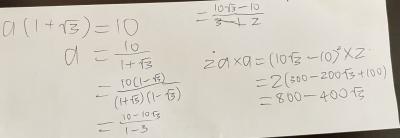 a(1+√3)=10
a = 10/(1+√3)
= 10(1-√3)/((1+√3)(1-√3))
= (10-10√3)/(1-3)
= (10√3-10)/(3-1 2)
2a×a=(10√3-10)²×2
=2(300-200√3+100)
=800-400√3